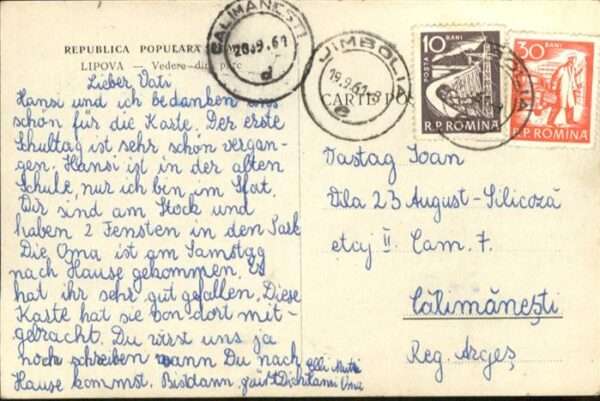 REPUBLICA POPULARA
LIPOVA — Vedere din parc
CARTE PO
CALIMANESTI
20.9.61
d
JIMBOLIA
19.9.61
e
10 BANI
POSTA
R.P. ROMINA
30 BANI
R.P. ROMINA
Lieber Vati
Hansi und ich bedanken uns
schön für die Kaste. Der erste
Schultag ist sehr schön vergan-
gen. Hansi ist in der alten
Schule, nur ich bin im Sfat.
Dir sind am Stock und
haben 2 Fensten in den Park
Die Oma ist am Samstag
nach Hause gekommen. Es
hat ihr sehr gut gefallen. Diese
Kaste hat sie von dort mit-
gebracht. Du wirst uns ja
noch schreiben wann Du nach
Hause kommst. Bis dann grüßt Dich Hansi Oma
Elli Mutti
Tastag Ioan
Vila 23 August - Silicoză
etaj II. Cam. 7.
Călimăneşti
Reg. Argeş